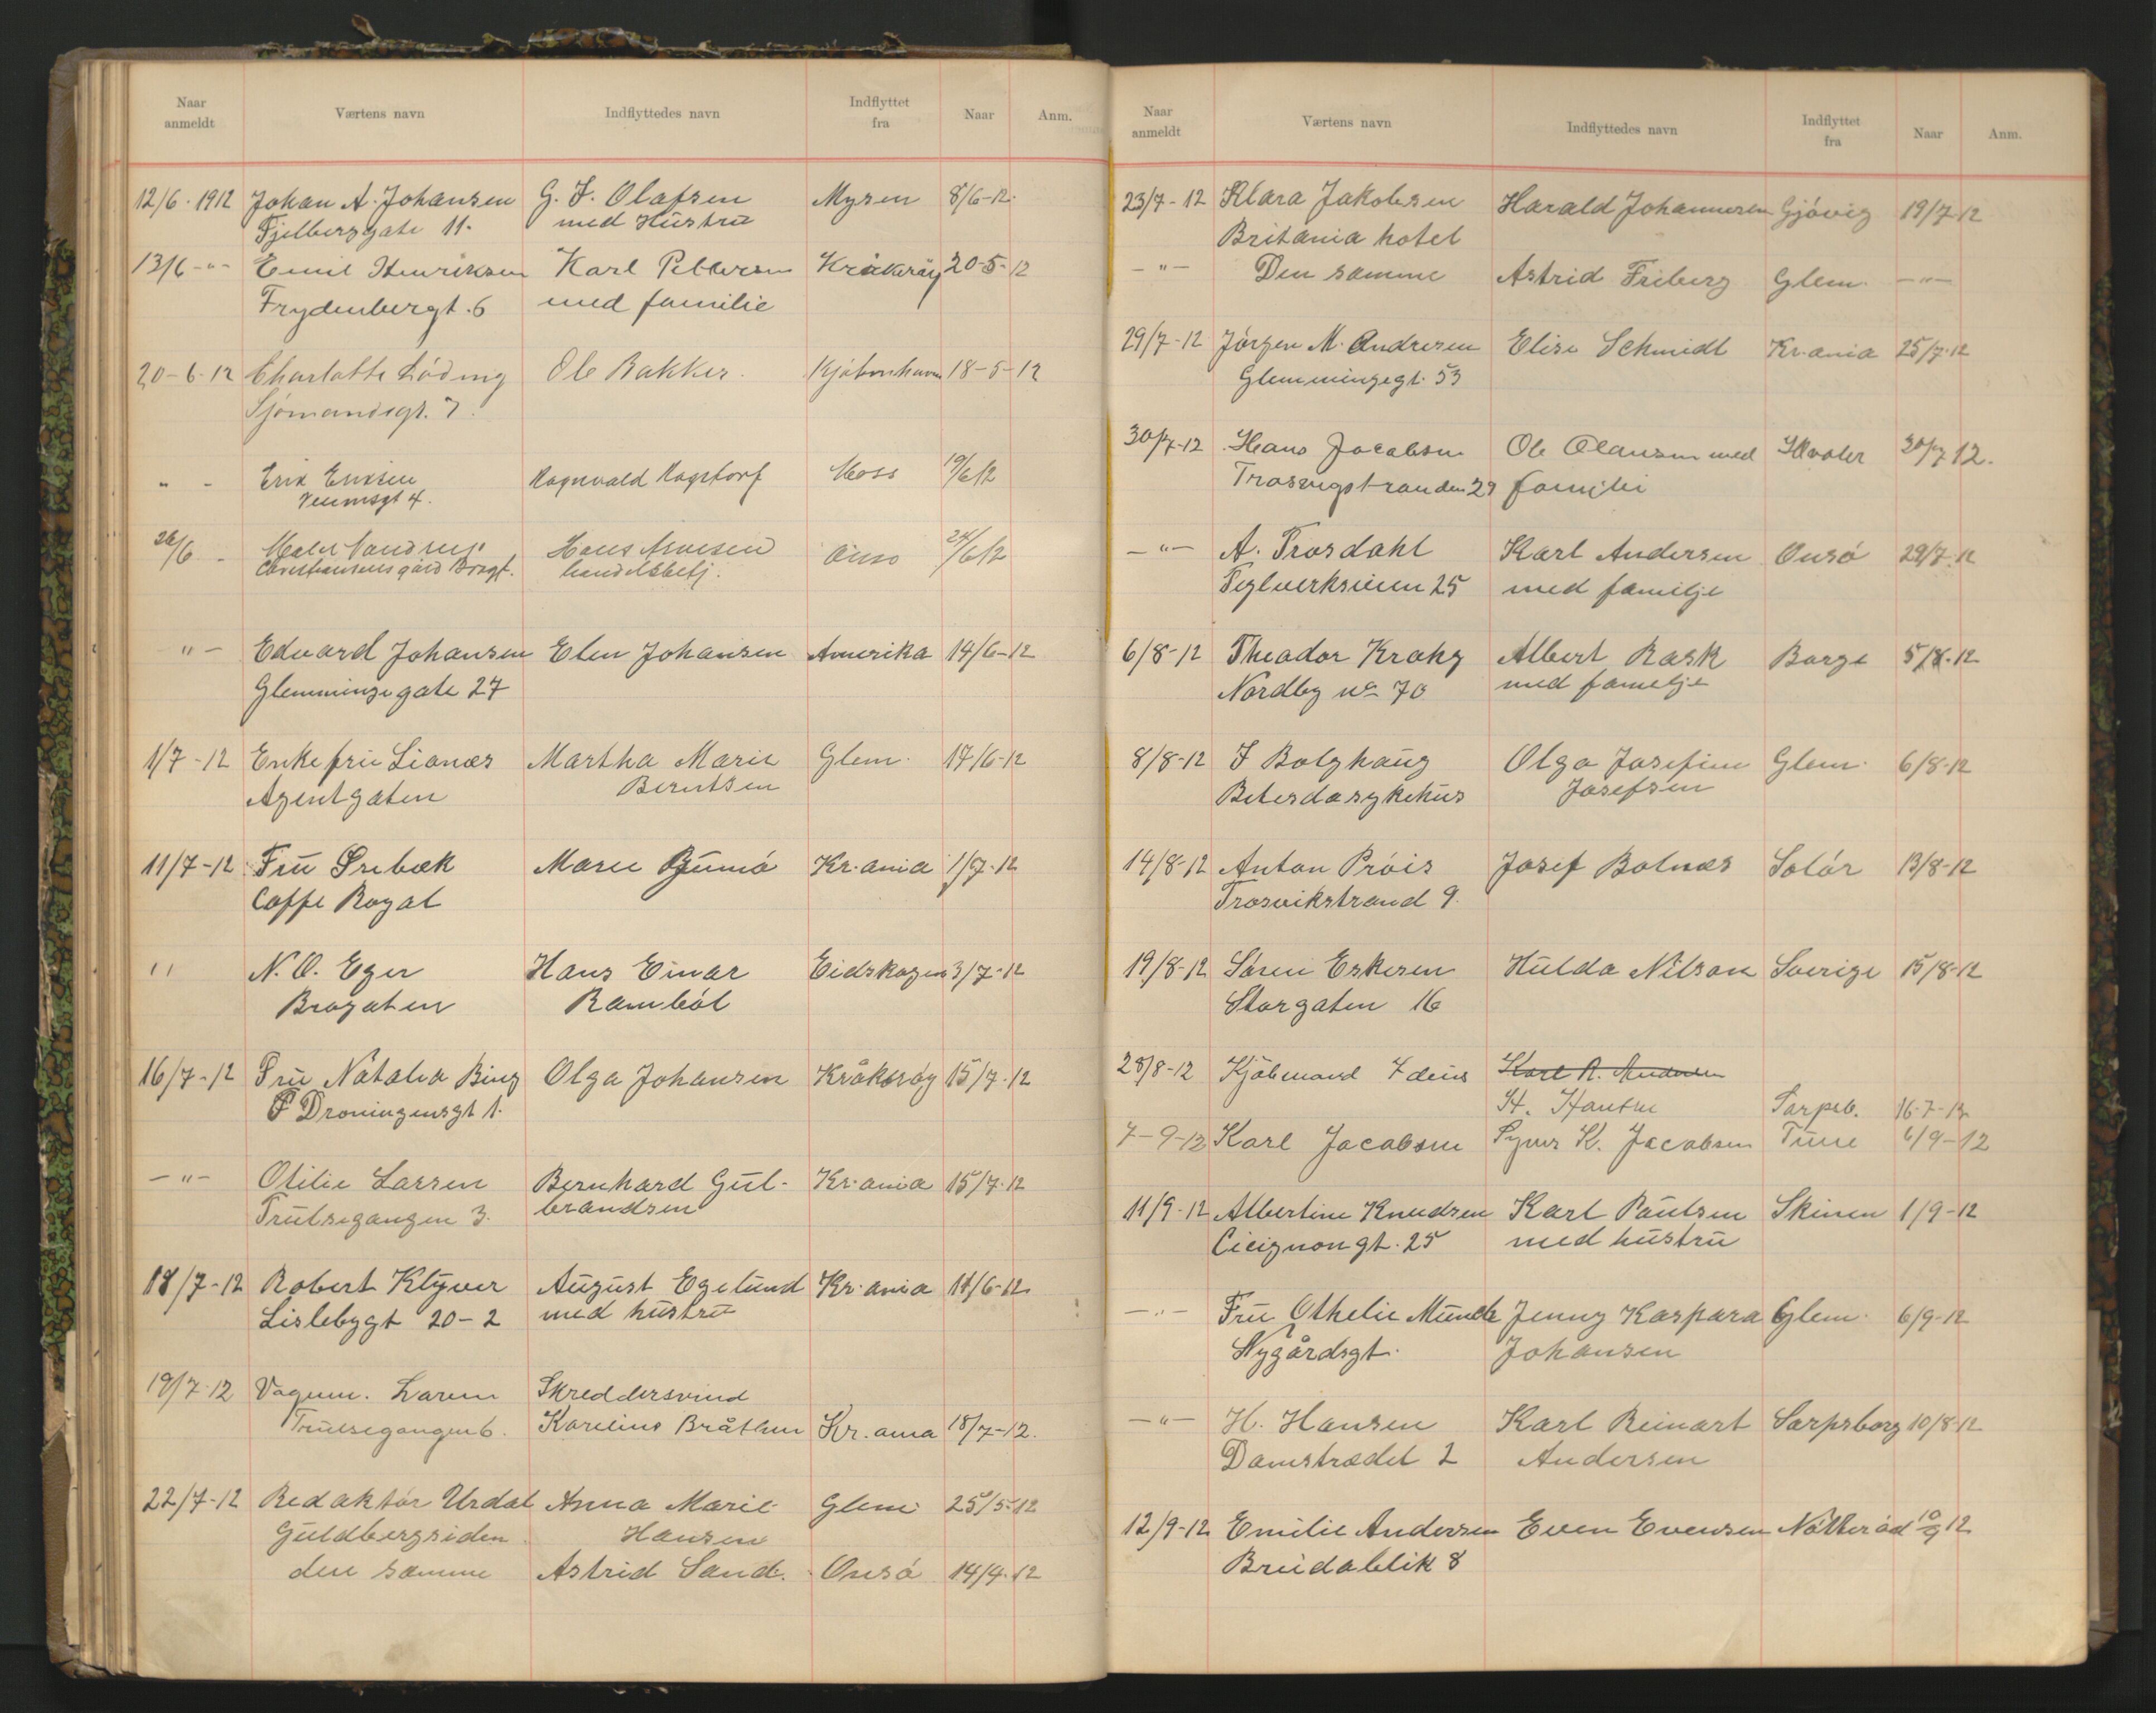 Naar anmeldt Værtens navn Indflyttedes navn Indflyttet fra Naar Anm.
12/6. 1912 Johan A. Johansen G. F. Olafsen Mysen 8/6-12.
Fjelberggate 11. med Hustru
13/6 -"- Emil Henriksen Karl Pettersen Kråkeröy 20-5-12
Frydenbergt. 6 med familie
20-6-12 Charlotte Löding Ole Bakker. Kjöbenhavn 18-5-12
Sjömandsgt. 7.
" - Erik Eriksen Ragnvald Moss 19/6 12
Veumsgt 4.
26/6 - Maler Hans Arnesen Onsö 24/6 12
Christiansens gård Brogt. handelsbetj.
" - Edvard Johansen Elen Johansen Amerika 14/6-12
Glemmingegate 27
1/7-12 Enkefru Lianæs Martha Marie Glem. 17/6-12
Agentgaten Berntsen
11/7-12 Fru Srebæk Marie Kr.ania 1/7-12
Caffe Royal
" N. O. Eger Hans Einar Eidskogen 3/7-12
Brogaten Ramböl
16/7-12 Fru Natalia Bing Olga Johansen Kråkeröy 15/7-12
Droningensgt 1.
-"- Otilie Larsen Bernhard Gul- Kr.ania 15/7-12
Trulsegangen 3. brandsen
18/7-12 Robert Klyver August Egelund Kr.ania 11/6-12
Lislebygt 20-2 med hustru
19/7-12 Vognm. Larsen Skreddersvend
Trulsegangen 6. Karelius Bråthen Kr.ania 18/7-12.
22/7-12 Redaktör Urdal Anna Marie Glem. 25/5-12
Guldbergsiden Hansen
den samme Astrid Sand. Onsö 14/4-12
Naar anmeldt Værtens navn Indflyttedes navn Indflyttet fra Naar Anm.
23/7-12 Klara Jakobsen Harald Johannesen Gjövig 19/7-12
Britania hotel
-"- Den samme Astrid Friberg Glem. -"-
29/7-12 Jörgen M. Andresen Elise Schmidt Kr.ania 25/7-12
Glemmingegt. 53
30/7-12 Hans Jacobsen Ole Olausen med Hvaler 30/7 12.
Trosvigstranden 29 familie
-"- A. Trosdahl Karl Andersen Onsö 29/7-12
Teglverksveien 25 med familje
6/8-12 Theodor Krohg Albert Rask Borge 5/8-12
Nordby no 70 med familje
8/8-12 F Bolghaug Olga Josefine Glem. 6/8-12
Betesdasykehus Josefsen
14/8-12 Anton Pröis Josef Bolnæs Solör 13/8-12
Trosvikstrand 9.
19/8-12 Sören Eskesen Hulda Nilson Sverige 15/8-12
Storgaten 16
28/8-12 Kjöbmand Karl A. Andersen
H. Sarpsb. 16-7-12
7-9-12 Karl Jacobsen Syver K. Jacobsen Tune 6/9-12
11/9-12 Albertine Knudsen Karl Paulsen Skien 1/9-12
Cicignongt. 25 med hustru
-"- Fru Othelie Munch Jenny Kaspara Glem. 6/9-12
Nygårdsgt. Johansen
-"- H. Hansen Karl Reinart Sarpsborg 10/8-12
Damstrædet 2 Andersen
12/9-12 Emilie Andersen Even Evensen Nötteröd 10/9 12
Breidablik 8